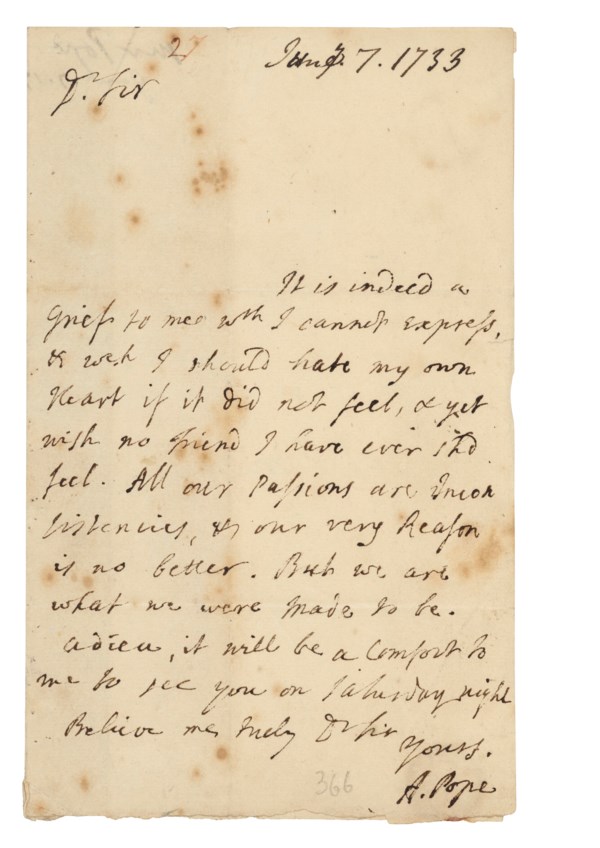 June 7. 1733
Dr Sir
It is indeed a
Grief to mee wch I cannot Express,
& wch I should hate my own
Heart if it did not feel, & yet
wish no Friend I have ever shd
feel. All our Passions are Incon
sistencies, & our very Reason
is no better. But we are
what we were made to be.
Adieu, it will be a Comfort to
me to see you on Saturday night
Believe me truly Dr Sir
Yours.
A. Pope
366